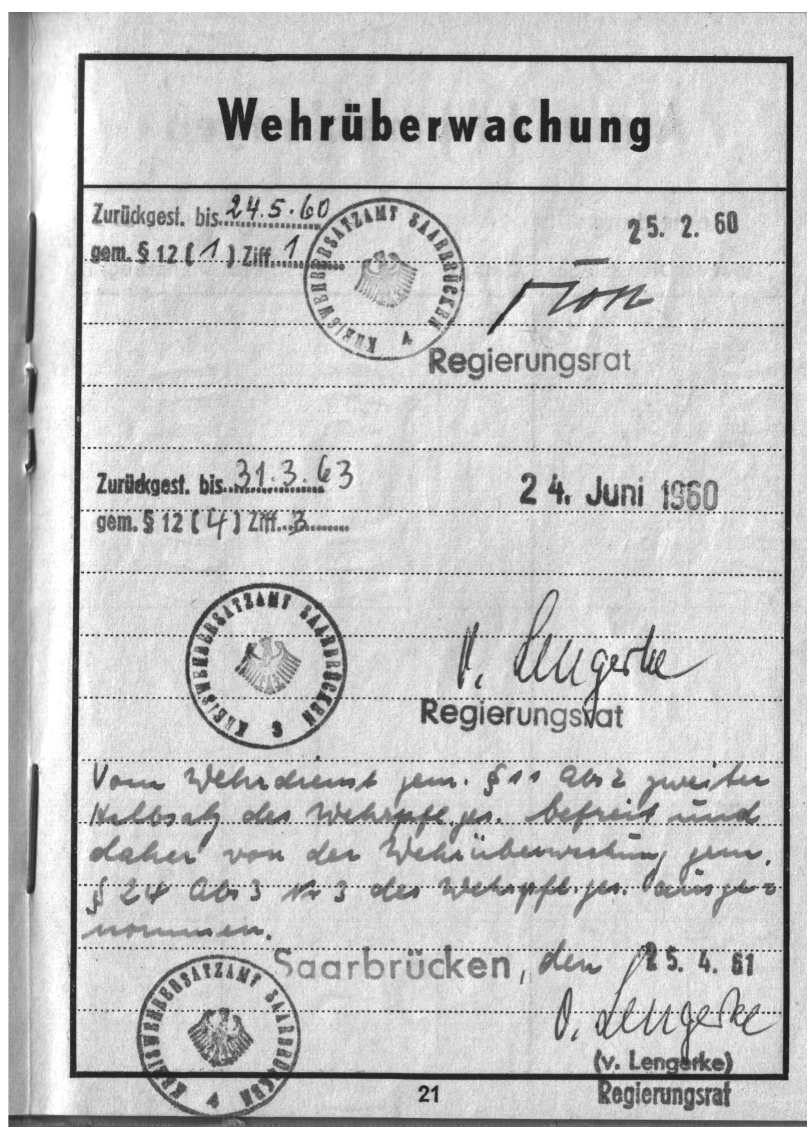 Wehrüberwachung
Zurückgest. bis 24.5.60
gem. § 12 (1) Ziff. 1
KREISWEHRERSATZAMT SAARBRÜCKEN 4
25. 2. 60
Regierungsrat
Zurückgest. bis 31.3.63
gem. § 12 (4) Ziff. 3
24. Juni 1960
KREISWEHRERSATZAMT SAARBRÜCKEN 3
v. Lengerke
Regierungsrat
Vom Wehrdienst gem. § 11 Abs 2 zweiter
Halbsatz des Wehrpfl.ges. befreit und
daher von der Wehrüberwachung gem.
§ 24 Abs 3 Nr 3 des Wehrpfl.ges. ausge=
nommen.
Saarbrücken, den 25. 4. 61
KREISWEHRERSATZAMT SAARBRÜCKEN 4
v. Lengerke
(v. Lengerke)
Regierungsrat
21